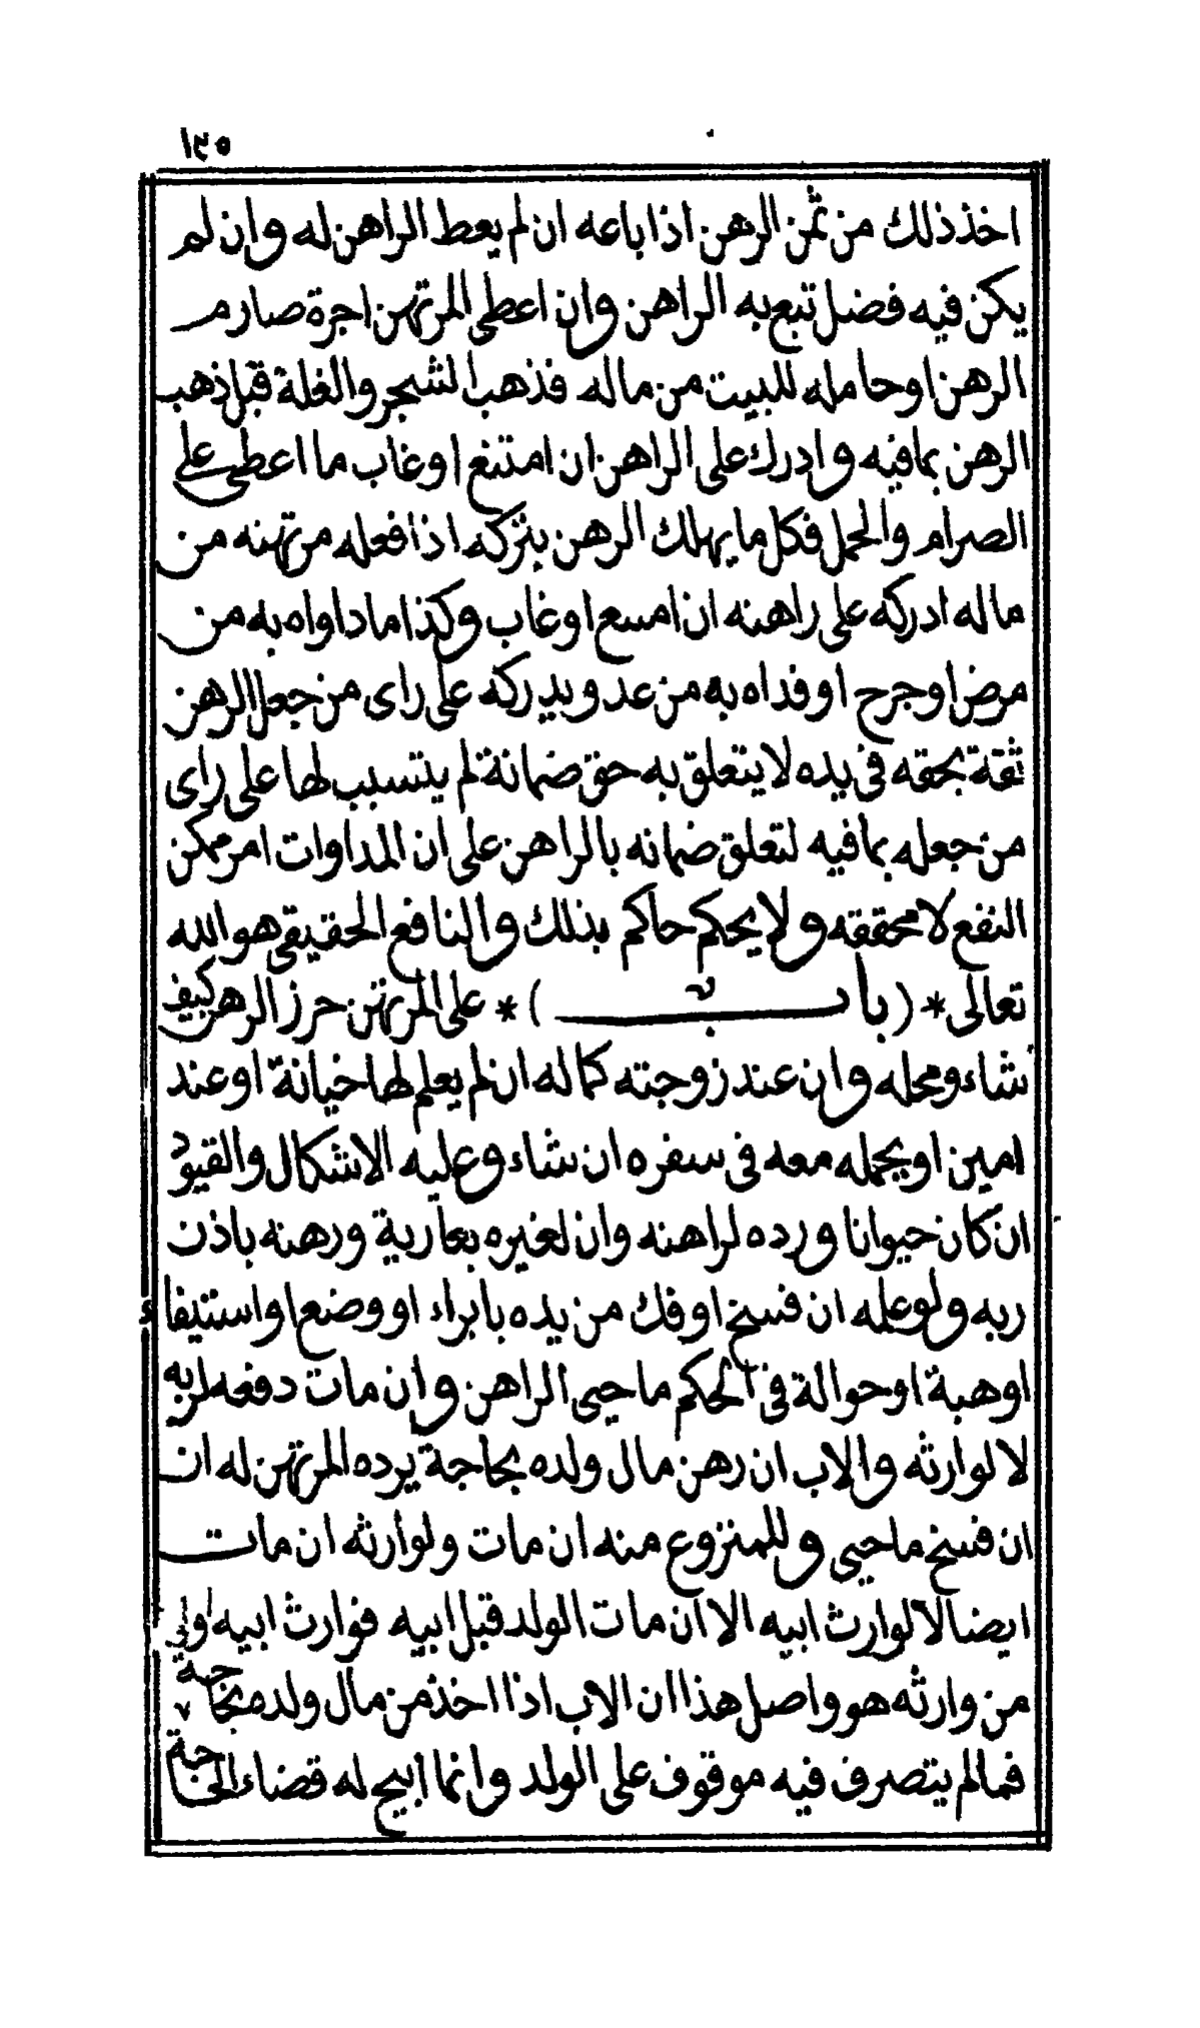 ١٢٥
اخذ ذلك من ثمن الرهن اذا باعه ان لم يعط الراهن له وان لم
يكن فيه فضل تبع به الراهن وان اعطى المرتهن اجرة صارم
الرهن او حامله للبيت من ماله فذهب الشجر والغلة قبل ذهب
الرهن بما فيه وادرك على الراهن ان امتنع او غاب ما اعطى على
الصرام والحمل فكل ما يهلك الرهن بتركه اذا فعله مرتهنه من
ماله ادركه على راهنه ان امتنع او غاب وكذا ما داواه به من
مرض او جرح او فداه به من عدو يدركه على راى من جعل الرهن
ثقة بحقه فى يده لا يتعلق به حق ضمانة لم يتسبب لها على راى
من جعله بما فيه لتعلق ضمانه بالراهن على ان المداوات امر ممكن
النفع لا محققه ولا يحكم حاكم بذلك والنافع الحقيقى هو الله
تعالى * ( باب ) * على المرتهن حرز الرهن كيف
شاء ومحله وان عند زوجته كماله ان لم يعلم لها خيانة او عند
امين او يحمله معه فى سفره ان شاء وعليه الاشكال والقيود
ان كان حيوانا ورده لراهنه وان لغيره بعارية ورهنه باذن
ربه ولو علمه ان فسخ او فك من يده بابراء او وضع او استيفاء
او هبة او حوالة فى الحكم ما حيى الراهن وان مات دفعه لربه
لا لوارثه والاب ان رهن مال ولده بحاجة يرده المرتهن له ان
ان فسخ ما حيى وللمنزوع منه ان مات ولوارثه ان مات
ايضا لا لوارث ابيه الا ان مات الولد قبل ابيه فوارث ابيه اولى
من وارثه هو واصل هذا ان الاب اذا اخذ من مال ولده بحاجة
فما لم يتصرف فيه موقوف على الولد وانما ابيح له قضاء الحاجة